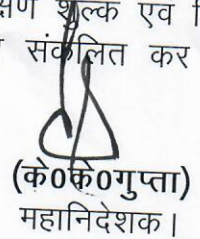 शुल्क एवं
संकलित कर
(के0के0गुप्ता)
महानिदेशक।